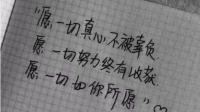 "愿一切真心不被辜负
愿一切努力终有收获
愿一切如你所愿"